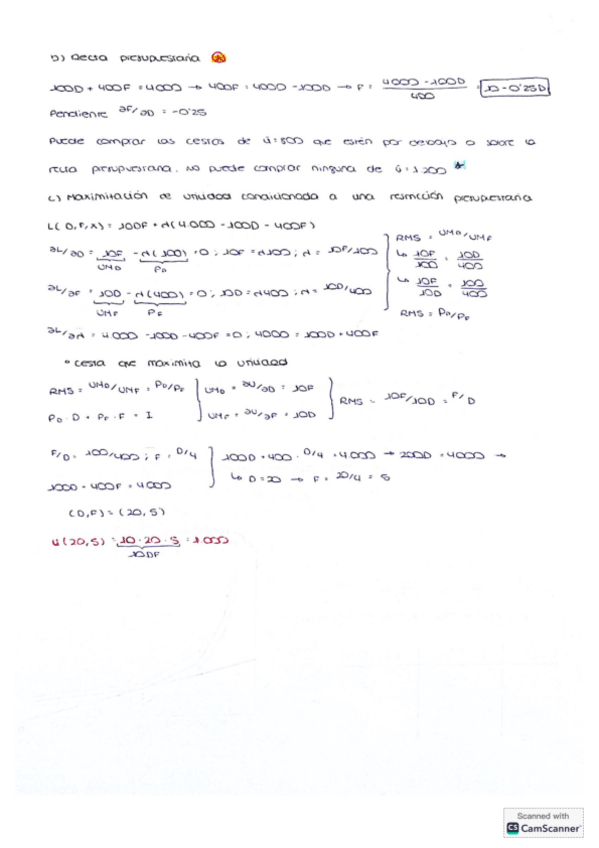 b) Recta presupuestaria
100D + 400F = 4000 → 400F = 4000 - 100D → F = (4000 - 100D)/400 = 10 - 0'25D
Pendiente ∂F/∂D = -0'25
Puede comprar las cestas de ū = 800 que estén por debajo o sobre la
recta presupuestaria. No puede comprar ninguna de ū = 1200
c) Maximización de utilidad condicionada a una restricción presupuestaria
L(D,F,λ) = 10DF + λ(4.000 - 100D - 400F)
∂L/∂D = 10F - λ(100) = 0 ; 10F = λ100 ; λ = 10F/100
UMD PD
∂L/∂F = 10D - λ(400) = 0 ; 10D = λ400 ; λ = 10D/400
UMF PF
RMS = UMD/UMF
↳ 10F/100 = 10D/400
↳ 10F/10D = 100/400
RMS = PD/PF
∂L/∂λ = 4000 - 100D - 400F = 0 ; 4000 = 100D + 400F
* Cesta que maximiza la utilidad
RMS = UMD/UMF = PD/PF
PD · D + PF · F = I
UMD = ∂U/∂D = 10F
UMF = ∂U/∂F = 10D
RMS = 10F/10D = F/D
F/D = 100/400 ; F = D/4
100D + 400F = 4000
100D + 400 · D/4 = 4000 → 200D = 4000 →
↳ D = 20 → F = 20/4 = 5
(D,F) = (20, 5)
U(20,5) = 10 · 20 · 5 = 1000
10DF
Scanned with
CS CamScanner